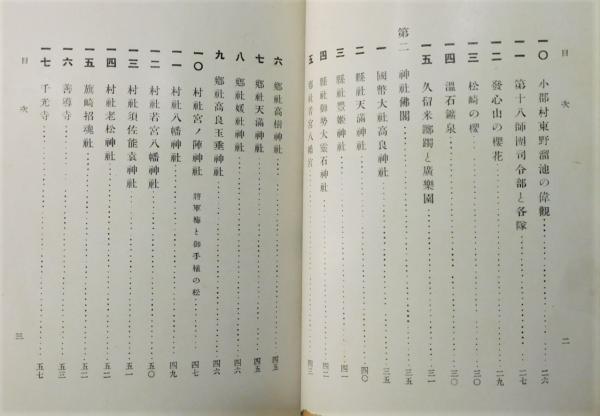 目次
一〇 小郡村東野溜池の偉觀 二六
一一 第十八師團司令部と各隊 二七
一二 發心山の櫻花 二九
一三 松崎の櫻 三〇
一四 溫石鑛泉 三〇
一五 久留米躑躅と廣樂園 三一
第二 神社佛閣 三五
一 國幣大社高良神社 三五
二 縣社天滿神社 四〇
三 縣社豐姬神社 四一
四 縣社御勢大靈石神社 四二
五 鄕社若宮八幡宮 四三
二
六 鄕社高樹神社 四五
七 鄕社天滿神社 四五
八 鄕社媛社神社 四六
九 鄕社高良玉垂神社 四六
一〇 村社宮ノ陣神社 將軍梅と御手植の松 四七
一一 村社八幡神社 四九
一二 村社若宮八幡神社 五〇
一三 村社須佐能袁神社 五一
一四 村社老松神社 五二
一五 旗崎招魂社 五二
一六 善導寺 五三
一七 千光寺 五七
目次
三